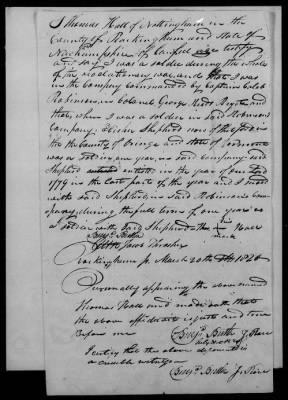 I Thomas Hall of Nottingham in the
County of Rockingham and State of
Newhampshire of Lawfull age testify
and say I was a soldier during the whole
of the revolutionary war and that I was
in the Company commanded by Captain Caleb
Robinson in Colonel George Reids Regiment and
that when I was a soldier in said Robinson's
Company, Shepherd now of
in the County of Orange and State of Vermont
was a soldier one year in said company said
Shepherd entisted in the year of our Lord
1779 in the last part of the year and I served
with said Shepherd in said Robinson's Com-
pany during the full term of one year as
a soldier with said Shepherd Hall
Benj. Butler mark
Rockingham ss. March 20th 1820
Personally appearing the above named
Thomas Hall and made oath that
the above affidavit is just and true
Before me
Benj. Butler J. Peace
I certify that the above deponent is
a credible witness
Benj. Butler J. Peace